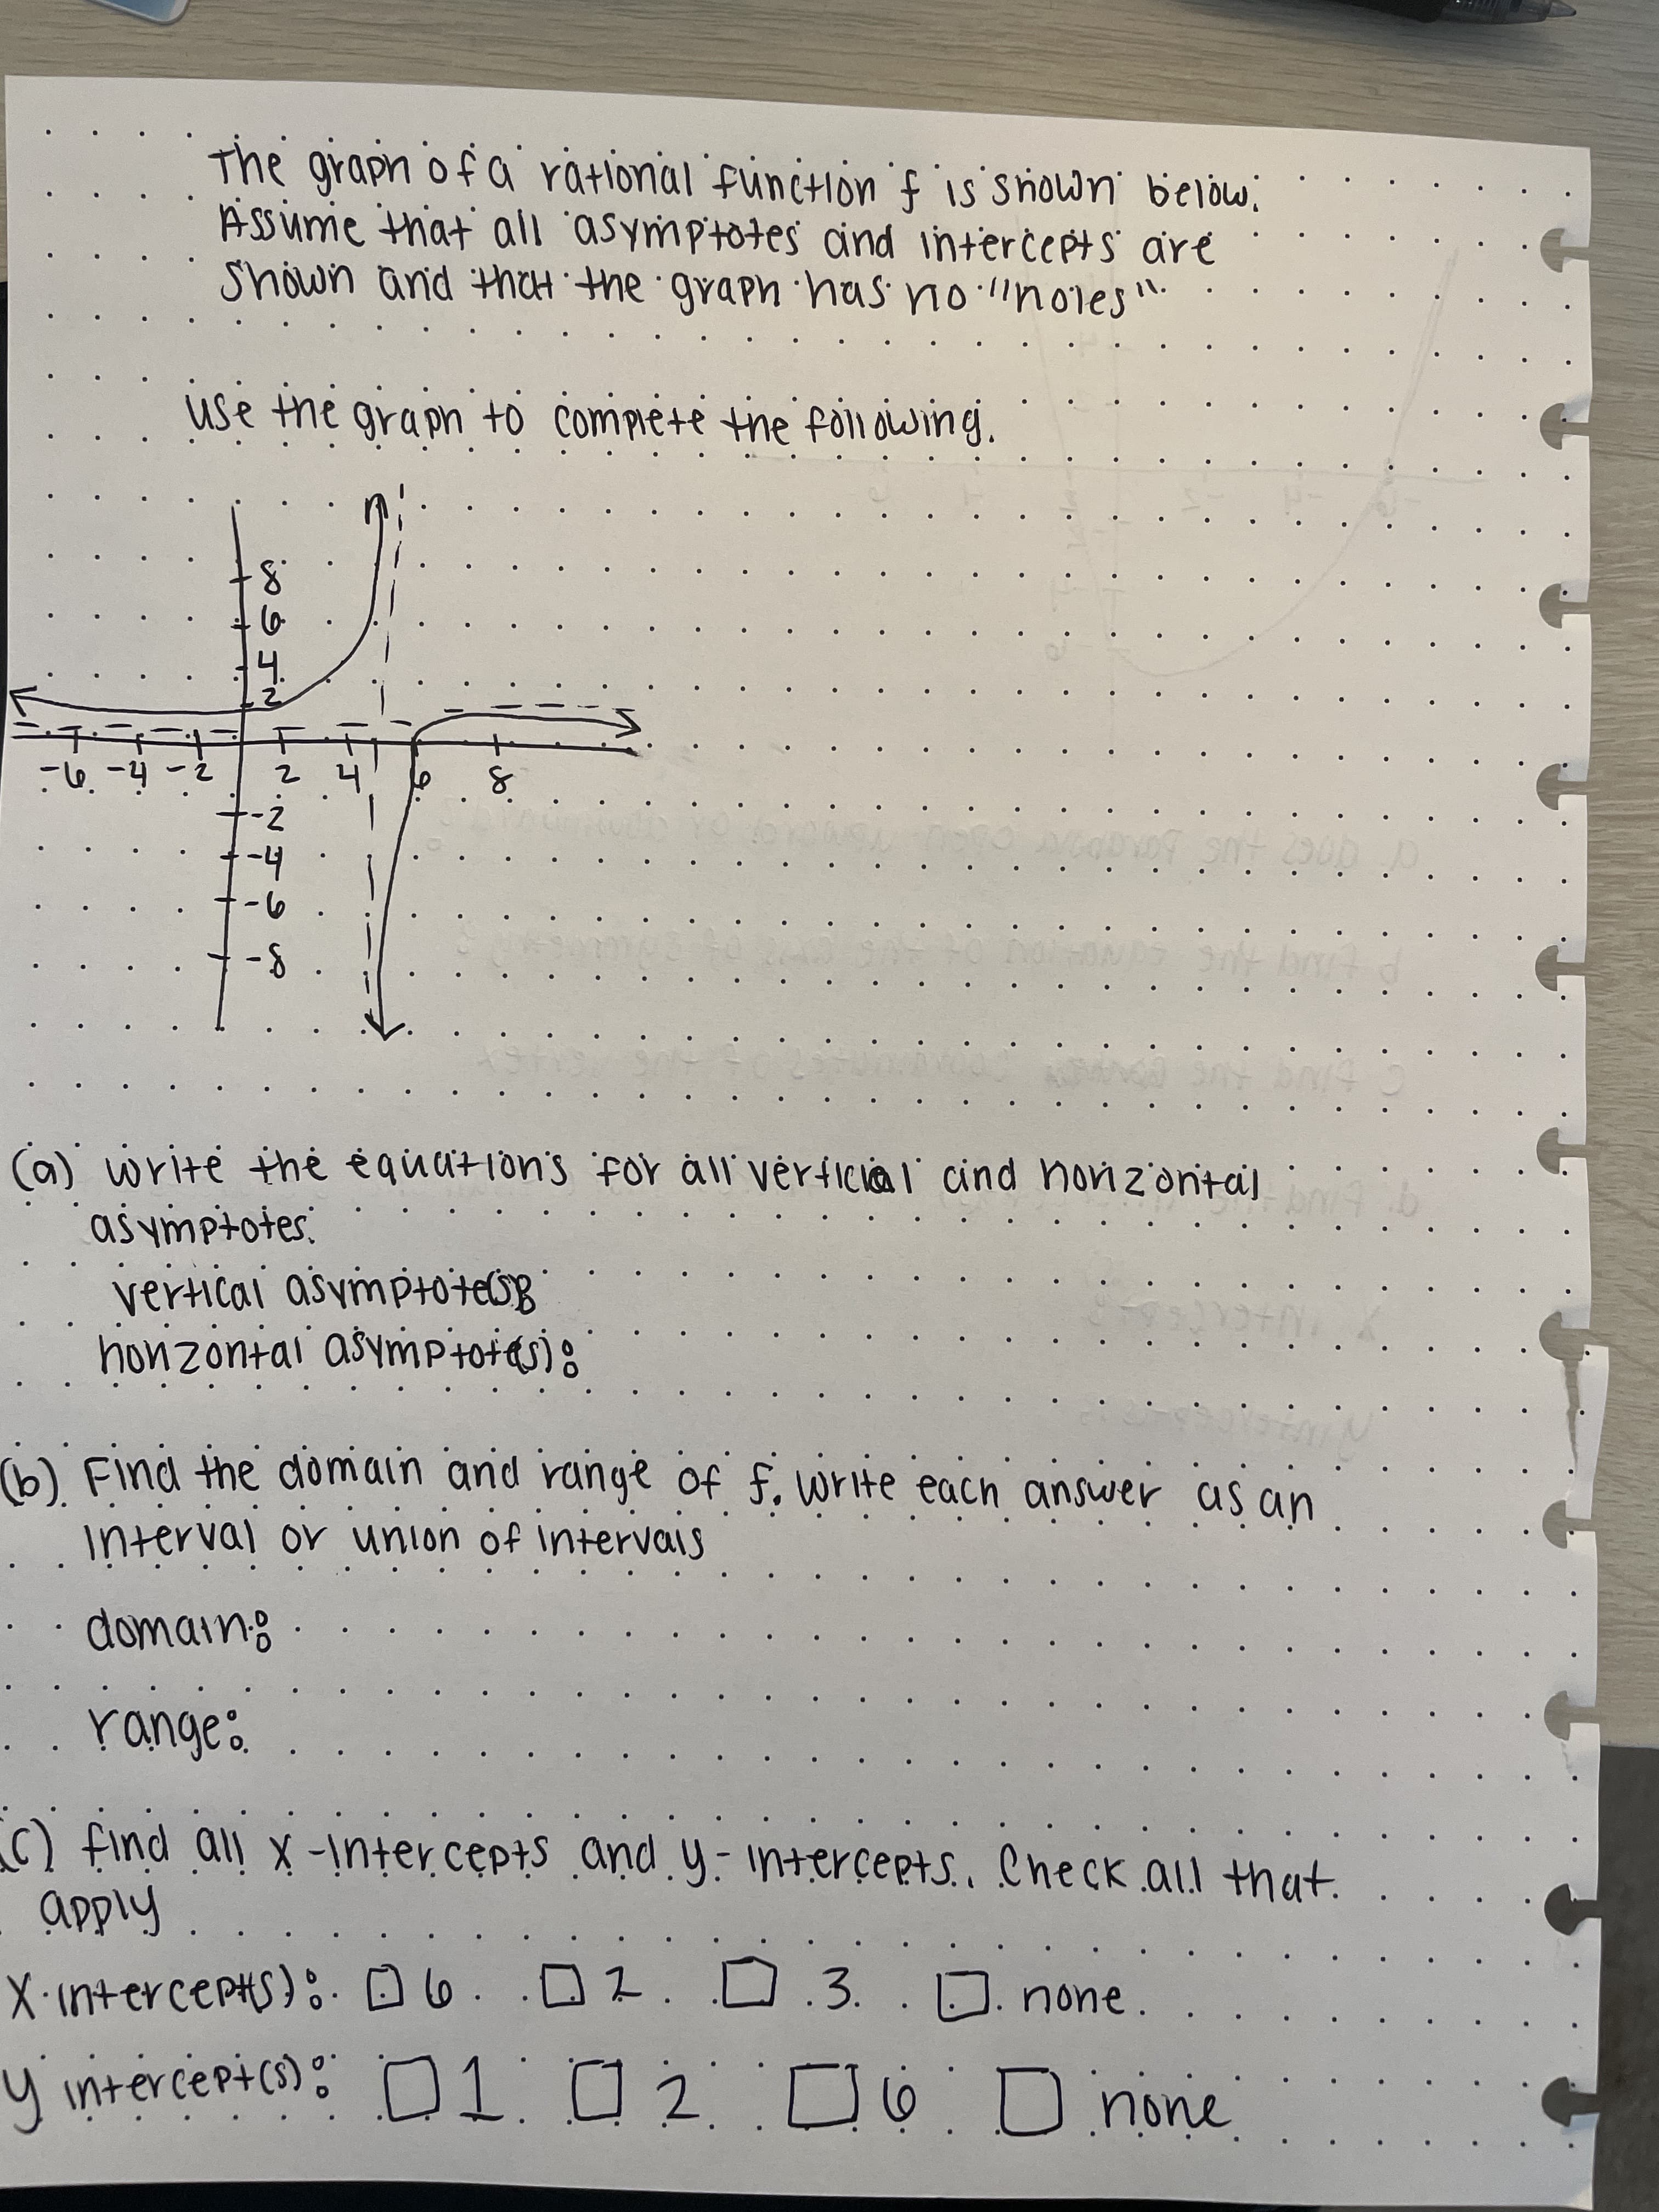 The graph of a rational function f is shown below.
Assume that all asymptotes and intercepts are
shown and that the graph has no "holes"
use the graph to complete the following.
8
6
4
2
-6 -4 -2 2 4 6 8
-2
-4
-6
-8
(a) write the equations for all vertical and horizontal
asymptotes.
vertical asymptote(s):
horizontal asymptote(s):
(b) Find the domain and range of f. write each answer as an
interval or union of intervals
domain:
range:
(c) find all x-intercepts and y-intercepts. Check all that
apply
x-intercept(s): □ 6 □ 2 □ 3 □ none
y intercept(s): □ 1 □ 2 □ 6 □ none